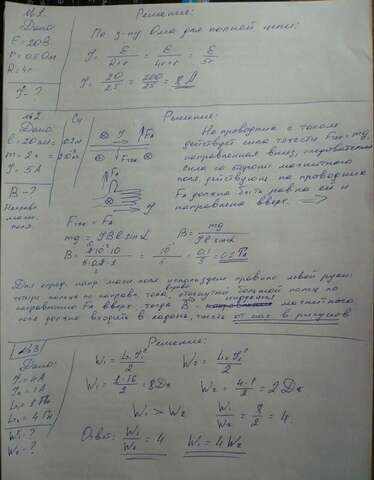 №1.
Дано:
E=20В
r=0.5Ом
R=4r
I-?
Решение:
По з-ну Ома для полной цепи:
I = E/(R+r) = E/(4r+r) = E/5r
I = 20/2.5 = 200/25 = 8 А
№2.
Дано:
Си
l=20см=
0.2м
m=2г
I=5А
B-?
Направ.
Решение:
На проводник с током
действует сила тяжести Fтяж=mg,
направленная вниз, следовательно
сила со стороны магнитного
поля, действующая на проводник
Fа должна быть равна ей и
направлена вверх. =>
I
Fа
Fтяж
Fа
I
Fтяж = Fа
mg = IBl sin α
B = mg/(Il sin α)
= 0.1/5 =
Для опред. напр. магн. поля используем правило левой руки:
четыре пальца по направл. тока, отогнутый большой палец по
направлению Fа вверх, тогда B индукция магнитного
поля должно входить в ладонь, то есть от нас в рисунок
№3
Дано:
Решение:
I₁=4А
I₂=1А
L₁=1Гн
L₂=4Гн
W₁-?
W₂-?
W₁ = L₁I₁²/2
W₂ = L₂I₂²/2
W₁ = 1·16/2 = 8Дж
W₂ = 4·1/2 = 2Дж
W₁ > W₂
W₁/W₂ = 8/2 = 4.
Ответ: W₁/W₂ = 4
W₁=4W₂